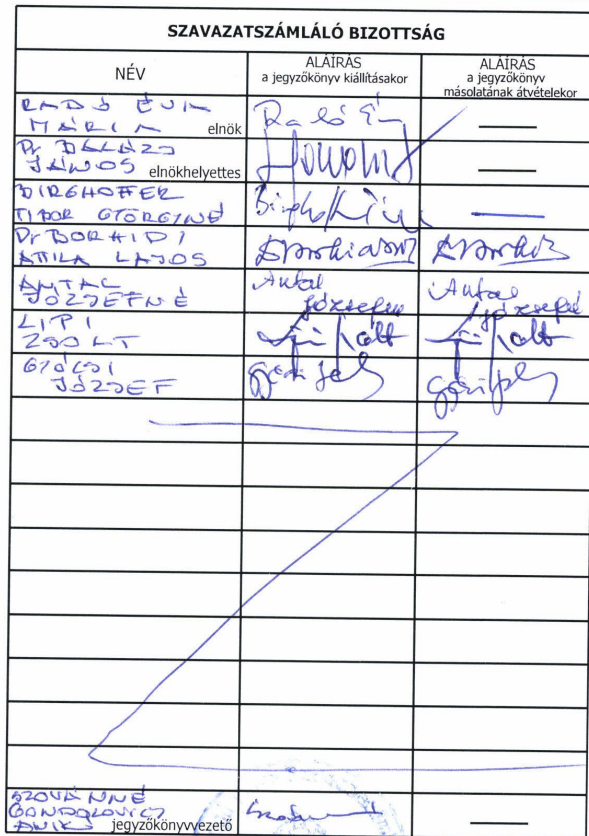 SZAVAZATSZÁMLÁLÓ BIZOTTSÁG
NÉV
ALÁÍRÁS
a jegyzőkönyv kiállításakor
ALÁÍRÁS
a jegyzőkönyv
másolatának átvételekor
RADÓ ÉVA
MÁRIA elnök
Radó É
Dr BALÁZS
JÁNOS elnökhelyettes
BIRGHOFFER
TIBOR GYÖRGYNÉ
Dr BORHIDI
ATTILA LAJOS
ANTAL
JÓZSEFNÉ
Antal
Józsefné
Antal
Józsefné
LIPI
ZSOLT
Lipi Zsolt
Lipi Zsolt
GYÓCSI
JÓZSEF
SZOVÁNNÉ
GONDOLOVICZ
ANIKÓ jegyzőkönyvvezető